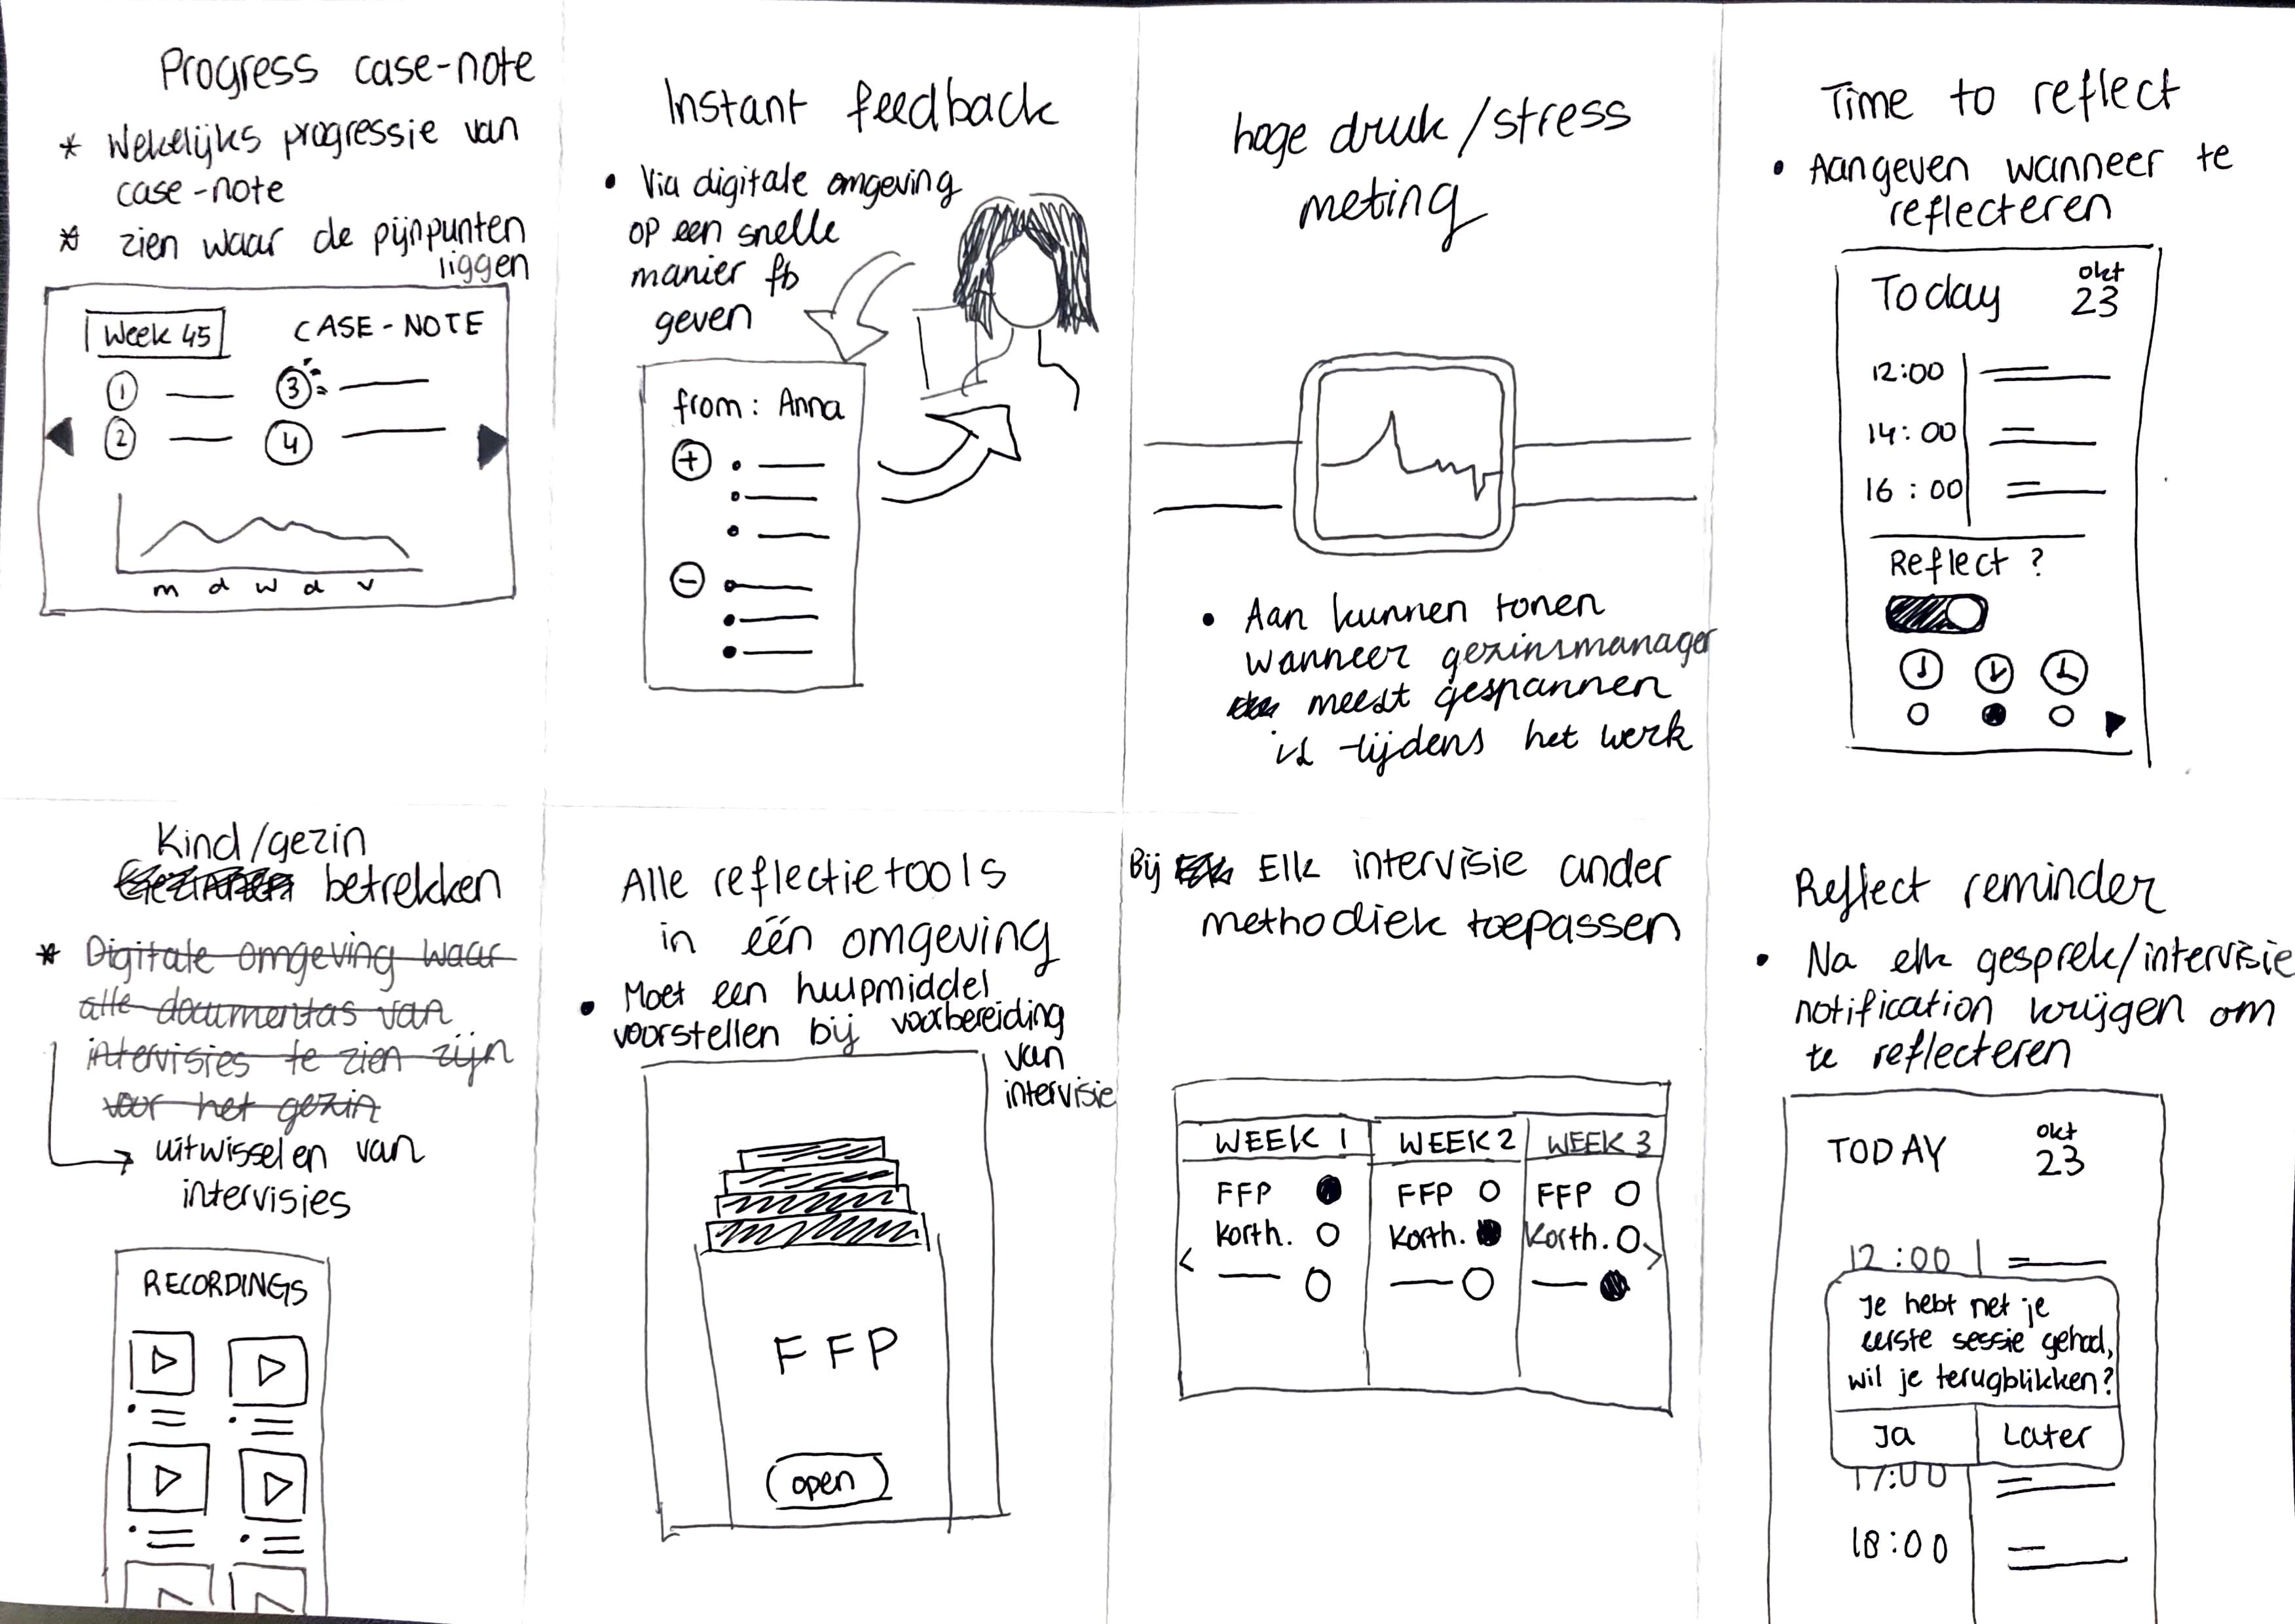 Progress case-note
* Wekelijks progressie van
case-note
* zien waar de pijnpunten
liggen
Week 45
CASE-NOTE
1
3
2
4
m d w d v
Instant feedback
• Via digitale omgeving
op een snelle
manier fb
geven
from: Anna
+
-
hoge druk/stress
meting
• Aan kunnen tonen
wanneer gezinsmanager
meest gespannen
is tijdens het werk
Time to reflect
• Aangeven wanneer te
reflecteren
Today
okt
23
12:00
14:00
16:00
Reflect?
Kind/gezin
betrekken
* Digitale omgeving waar
alle documentas van
intervisies te zien zijn
voor het gezin
uitwisselen van
intervisies
RECORDINGS
Alle reflectietools
in één omgeving
• Moet een hulpmiddel
voorstellen bij voorbereiding
van
intervisie
FFP
open
Bij Elk intervisie ander
methodiek toepassen
WEEK 1 WEEK 2 WEEK 3
FFP FFP FFP
Korth. Korth. Korth.
< >
Reflect reminder
• Na elk gesprek/intervisie
notification krijgen om
te reflecteren
TODAY
okt
23
12:00
Je hebt net je
eerste sessie gehad,
wil je terugblikken?
Ja Later
17:00
18:00